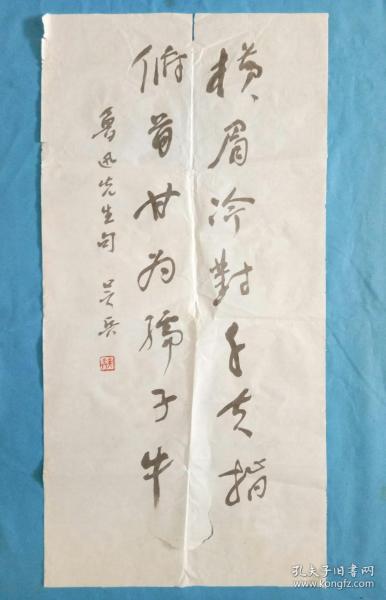 横眉冷對千夫指
俯首甘为孺子牛
鲁迅先生句 吴兵
孔夫子旧书网
www.kongfz.com